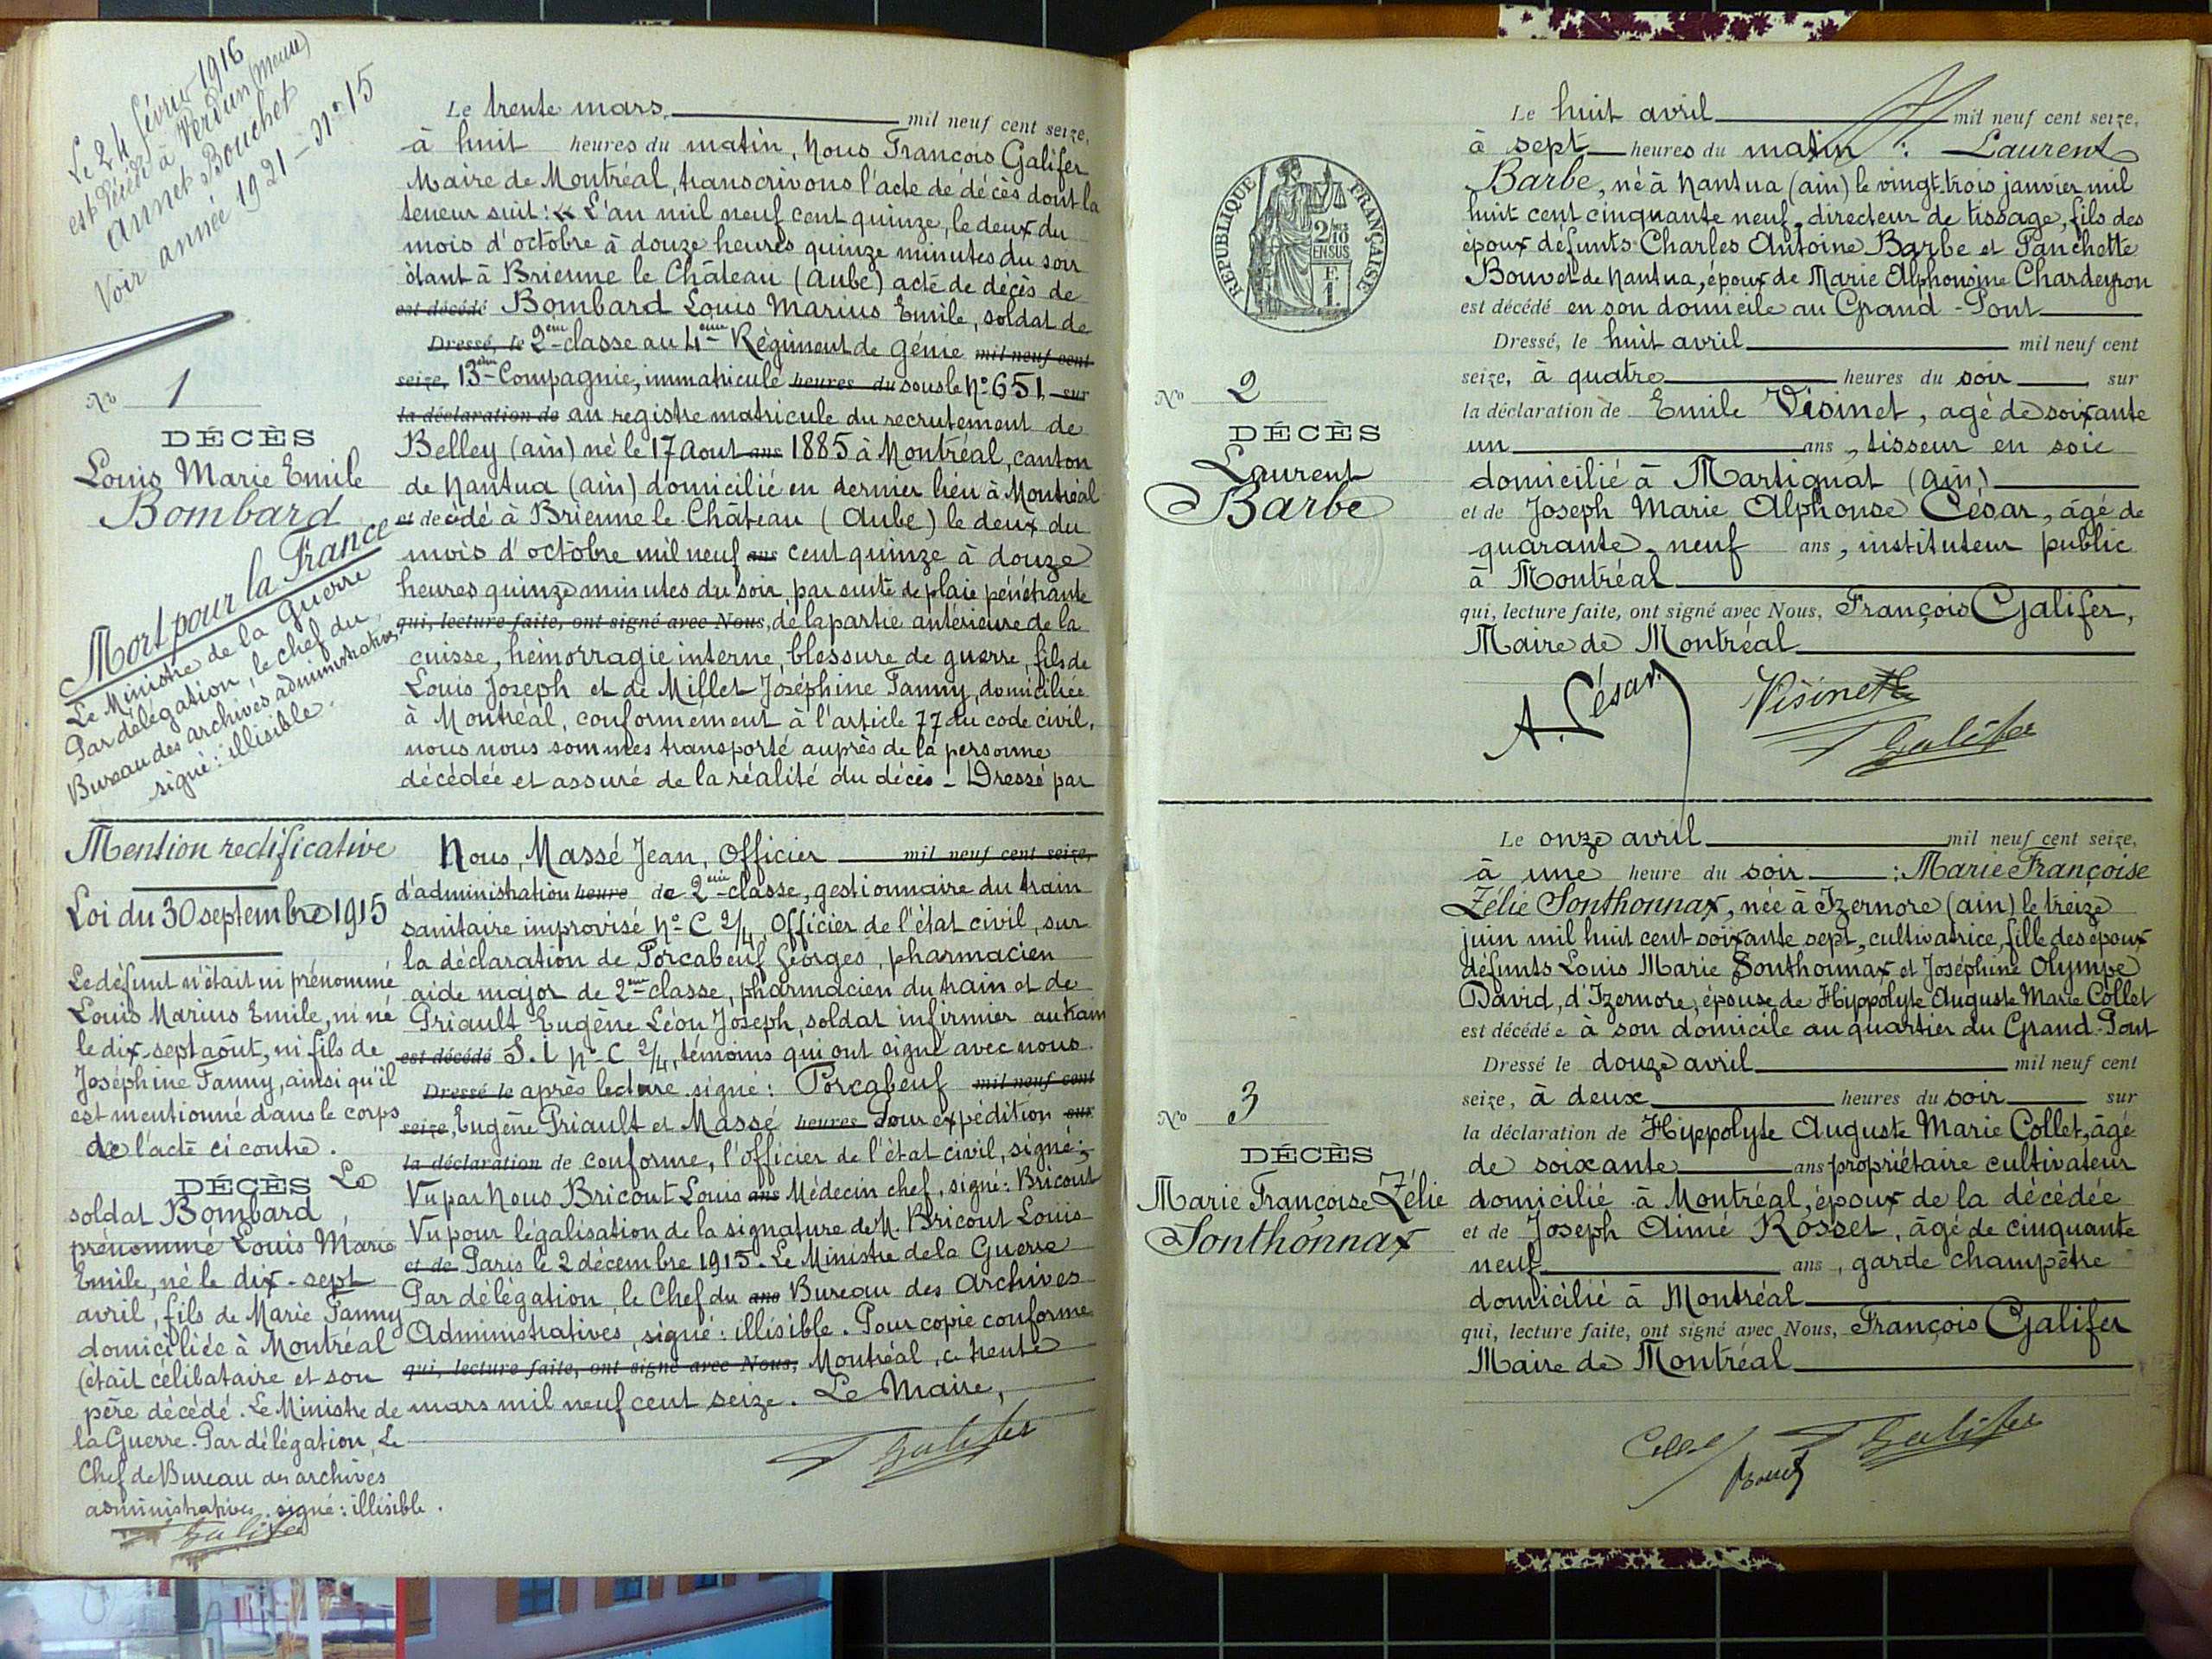 Le 24 février 1916
est décédé à Verdun (Meuse)
Annet Bouchet
Voir année 1921 - N° 15
Le trente mars mil neuf cent seize,
à huit heures du matin, Nous François Galifer
Maire de Montréal, transcrivons l'acte de décès dont la
teneur suit : « L'an mil neuf cent quinze, le deux du
mois d'octobre à douze heures quinze minutes du soir
étant à Brienne le Château (Aube) acte de décès de
est décédé Bombard Louis Marius Emile, soldat de
Dressé, le 2eme classe au 4eme Régiment de génie mil neuf cent
seize, 13eme Compagnie, immatriculé heures du sous le N° 651, sur
la déclaration de au registre matricule du recrutement de
Belley (ain) né le 17 Aout ans 1885 à Montréal, canton
de Nantua (ain) domicilié en dernier lieu à Montréal
et de cédé à Brienne le Château (Aube) le deux du
mois d'octobre mil neuf ans cent quinze à douze
heures quinze minutes du soir, par suite de plaie pénétrante
qui, lecture faite, ont signé avec Nous, de la partie antérieure de la
cuisse, hémorragie interne, blessure de guerre, fils de
Louis Joseph et de Millet Joséphine Fanny, domiciliée
à Montréal, conformément à l'article 77 du code civil,
nous nous sommes transporté auprès de la personne
décédée et assuré de la réalité du décès - Dressé par
N° 1
DÉCÈS
Louis Marie Emile
Bombard
Mort pour la France
Le Ministre de la Guerre
Par délégation, le chef du
Bureau des archives administratives,
signé : illisible.
Nous, Massé Jean, Officier mil neuf cent seize,
d'administration heure de 2eme classe, gestionnaire du train
sanitaire improvisé N° C 2/4, Officier de l'état civil, sur
la déclaration de Porcabeuf Georges, pharmacien
aide major de 2eme classe, pharmacien du train et de
Priault Eugène Léon Joseph, soldat infirmier au train
est décédé S.I N° C 2/4, témoins qui ont signé avec nous
Dressé le après lecture signé : Porcabeuf mil neuf cent
seize, Eugène Priault et Massé heures Pour expédition sur
la déclaration de conforme, l'officier de l'état civil, signé :
Vu par Nous Bricout Louis ans Médecin chef, signé : Bricout
Vu pour légalisation de la signature de M. Bricout Louis
et de Paris le 2 décembre 1915. Le Ministre de la Guerre
Par délégation, le Chef du ans Bureau des Archives
Administratives, signé : illisible. Pour copie conforme
qui, lecture faite, ont signé avec Nous, Montréal, ce trente
mars mil neuf cent seize. Le Maire,
Galifer
Mention rectificative
Loi du 30 septembre 1915
Le défunt n'était ni prénommé
Louis Marius Emile, ni né
le dix-sept août, ni fils de
Joséphine Fanny, ainsi qu'il
est mentionné dans le corps
de l'acte ci contre.
DÉCÈS Le
soldat Bombard
prénommé Louis Marie
Emile, né le dix-sept
avril, fils de Marie Fanny
domiciliée à Montréal
(était célibataire et son
père décédé. Le Ministre de
la Guerre. Par délégation, Le
Chef de Bureau des archives
administratives, signé : illisible.
Galifer
Le huit avril mil neuf cent seize,
à sept heures du matin : Laurent
Barbe, né à Nantua (ain) le vingt-trois janvier mil
huit cent cinquante neuf, directeur de tissage, fils des
époux défunts Charles Antoine Barbe et Fanchette
Bouvet de Nantua, époux de Marie Alphonsine Chardeyron
est décédé en son domicile au Grand-Pont
Dressé, le huit avril mil neuf cent
seize, à quatre heures du soir, sur
la déclaration de Emile Visinet, agé de soixante
un ans, tisseur en soie
domicilié à Martignat (ain)
et de Joseph Marie Alphonse César, âgé de
quarante neuf ans, instituteur public
à Montréal
qui, lecture faite, ont signé avec Nous, François Galifer,
Maire de Montréal
A. César
Visinet
Galifer
RÉPUBLIQUE FRANÇAISE
2/10 EN SUS
F. 1.
N° 2
DÉCÈS
Laurent
Barbe
Le onze avril mil neuf cent seize,
à une heure du soir : Marie Françoise
Zélie Sonthonnax, née à Izernore (ain) le treize
juin mil huit cent soixante sept, cultivatrice, fille des époux
défunts Louis Marie Sonthonnax et Joséphine Olympe
David, d'Izernore, épouse de Hippolyte Auguste Marie Collet
est décédée à son domicile au quartier du Grand-Pont
Dressé le douze avril mil neuf cent
seize, à deux heures du soir sur
la déclaration de Hippolyte Auguste Marie Collet, âgé
de soixante ans propriétaire cultivateur
domicilié à Montréal, époux de la décédée
et de Joseph Aimé Rosset, âgé de cinquante
neuf ans, garde champêtre
domicilié à Montréal
qui, lecture faite, ont signé avec Nous, François Galifer
Maire de Montréal
Collet
Rosset
Galifer
N° 3
DÉCÈS
Marie Françoise Zélie
Sonthonnax